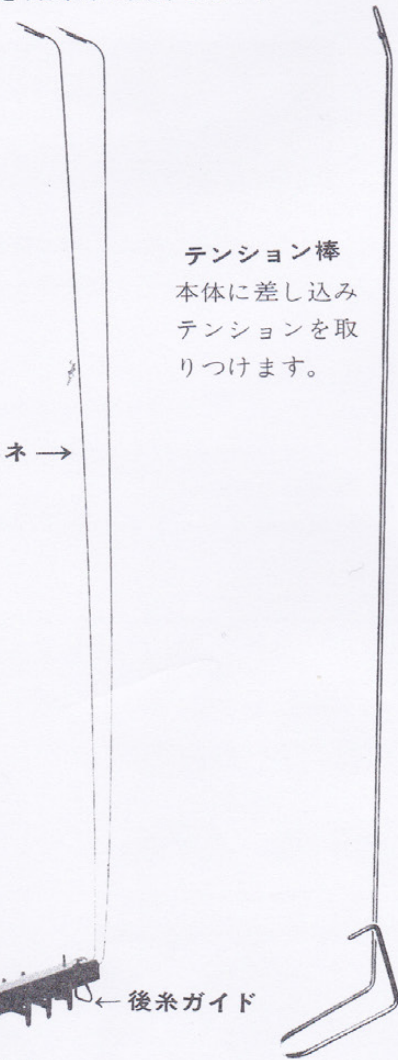 テンション棒
本体に差し込み
テンションを取
りつけます。
ネ →
← 後糸ガイド